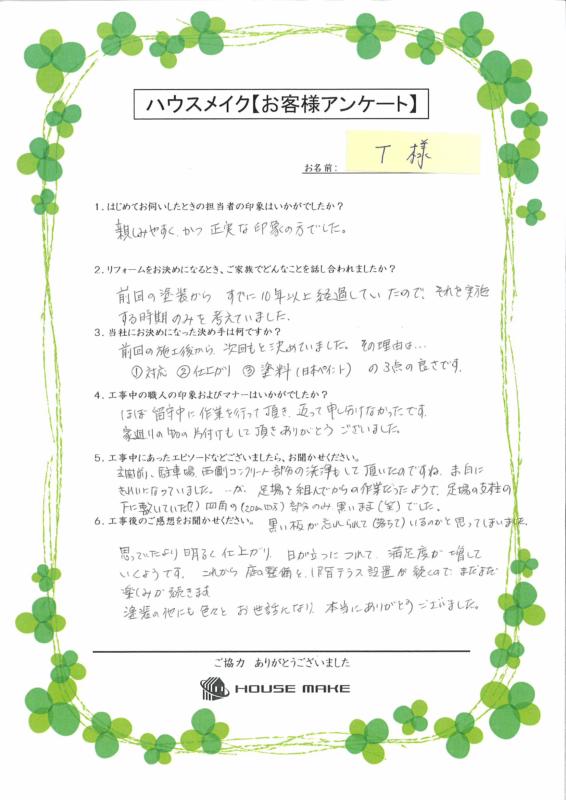 ハウスメイク【お客様アンケート】
お名前： T 様
1．はじめてお伺いしたときの担当者の印象はいかがでしたか？
親しみやすく、かつ 正実な印象の方でした。
2．リフォームをお決めになるとき、ご家族でどんなことを話し合われましたか？
前回の塗装から すでに10年以上経過していたので、それを実施
する時期のみを考えていました。
3．当社にお決めになった決め手は何ですか？
前回の施工後から、次回もと決めていました。その理由は…
①対応 ②仕上がり ③塗料(日本ペイント) の3点の良さです。
4．工事中の職人の印象およびマナーはいかがでしたか？
ほぼ留守中に作業を行って頂き、至って申し分けなかったです。
家廻りの物の片付けもして頂きありがとうございました。
5．工事中にあったエピソードなどございましたら、お聞かせください。
玄関前、駐車場、西側コンクリート部分の洗浄もして頂いたのですね。真白に
きれいになっていました。…が、足場を組んでからの作業だったようで、足場の支柱の
下に敷いていた(?) 四角の(20cm四方) 部分のみ、黒いまま(笑)でした。
黒い板が忘れられて(落ちて)いるのかと思ってしまいました。
6．工事後のご感想をお聞かせください。
思っていたより明るく仕上がり、日が立つにつれて、満足度が増して
いくようです。これから 庭の整備を、1F皆テラス設置が続くので、まだまだ
楽しみが続きます
塗装の他にも色々とお世話になり、本当にありがとうございました。
ご協力 ありがとうございました
HOUSE MAKE